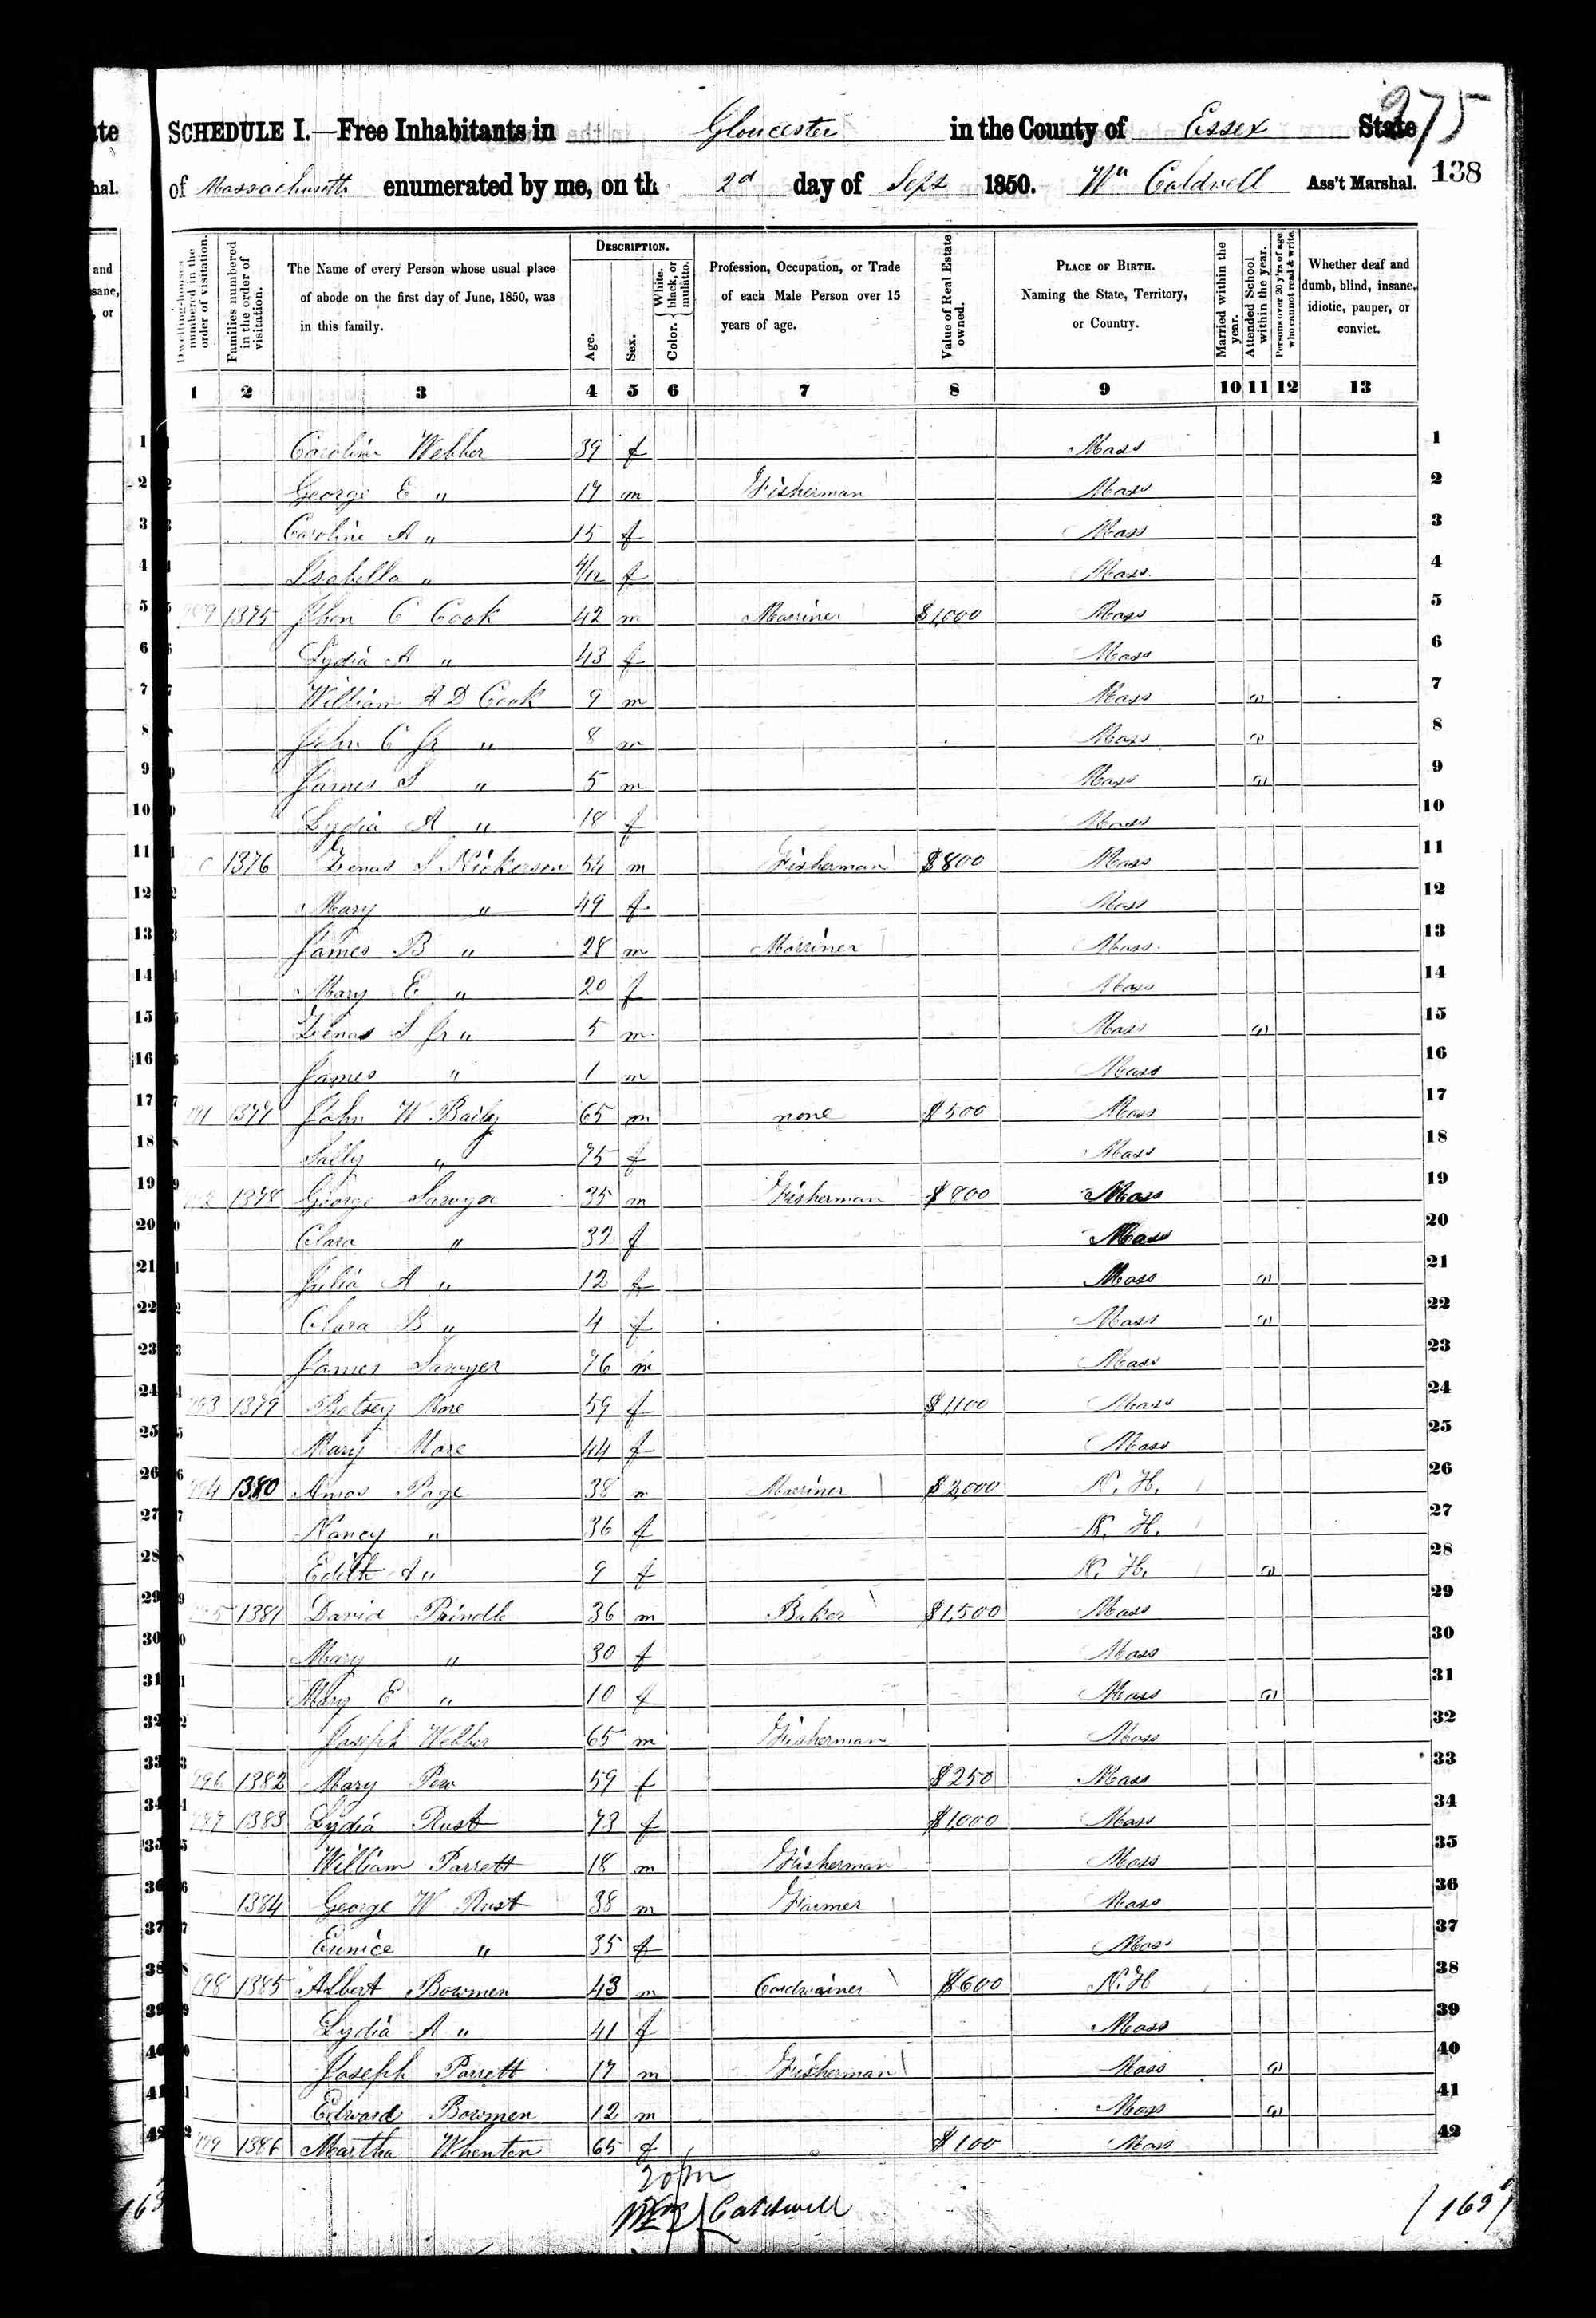 275
SCHEDULE I.—Free Inhabitants in Gloucester in the County of Essex State
of Massachusetts enumerated by me, on th 2d day of Sept 1850. Wm Caldwell Ass't Marshal. 138
Dwelling-houses numbered in the order of visitation. Families numbered in the order of visitation. The Name of every Person whose usual place of abode on the first day of June, 1850, was in this family. DESCRIPTION. Age. Sex. Color. White, black, or mulatto. Profession, Occupation, or Trade of each Male Person over 15 years of age. Value of Real Estate owned. PLACE OF BIRTH. Naming the State, Territory, or Country. Married within the year. Attended School within the year. Persons over 20 y'rs of age who cannot read & write. Whether deaf and dumb, blind, insane, idiotic, pauper, or convict.
1 2 3 4 5 6 7 8 9 10 11 12 13
1 Caroline Webber 39 f Mass 1
2 George E " 17 m Fisherman Mass 2
3 Caroline A " 15 f Mass 3
4 Isabella " 4/12 f Mass. 4
5 1375 Jhon C Cook 42 m Marriner $1,000 Mass 5
6 Lydia A " 43 f Mass 6
7 William A D Cook 9 m Mass 7
8 John C Jr " 8 m Mass 8
9 James S " 5 m Mass 9
10 Lydia A " 18 f Mass 10
11 1376 Zenas S Nickerson 54 m Fisherman $800 Mass 11
12 Mary " 49 f Mass 12
13 James B " 28 m Marriner Mass. 13
14 Mary E " 20 f Mass 14
15 Zenas S Jr " 5 m Mass 15
16 James " 1 m Mass 16
17 1377 John W Baily 65 m none $500 Mass 17
18 Sally " 75 f Mass 18
19 1378 George Sawyer 35 m Fisherman $800 Mass 19
20 Clara " 32 f Mass 20
21 Julia A " 12 f Mass 21
22 Clara B " 4 f Mass 22
23 James Sawyer 76 m Mass 23
24 793 1379 Bhetsey More 59 f $1,100 Mass 24
25 Mary More 44 f Mass 25
26 794 1380 Amos Page 38 m Marriner $2,000 N. H. 26
27 Nancy " 36 f N. H. 27
28 Edith A " 9 f N. H. 28
29 795 1381 David Prindle 36 m Baker $1,500 Mass 29
30 Mary " 30 f Mass 30
31 Mary E " 10 f Mass 31
32 Joseph Webber 65 m Fisherman Mass 32
33 796 1382 Mary Pew 59 f $250 Mass 33
34 797 1383 Lydia Rust 73 f $1,000 Mass 34
35 William Parrett 18 m Fisherman Mass 35
36 1384 George W Rust 38 m Farmer Mass 36
37 Eunice " 35 f Mass 37
38 798 1385 Albert Bowmen 43 m Cordwainer $600 N. H 38
39 Lydia A " 41 f Mass 39
40 Joseph Parrett 17 m Fisherman Mass 40
41 Edward Bowmen 12 m Mass 41
42 799 1386 Martha Whenten 65 f $100 Mass 42
20 m
Wm Caldwell